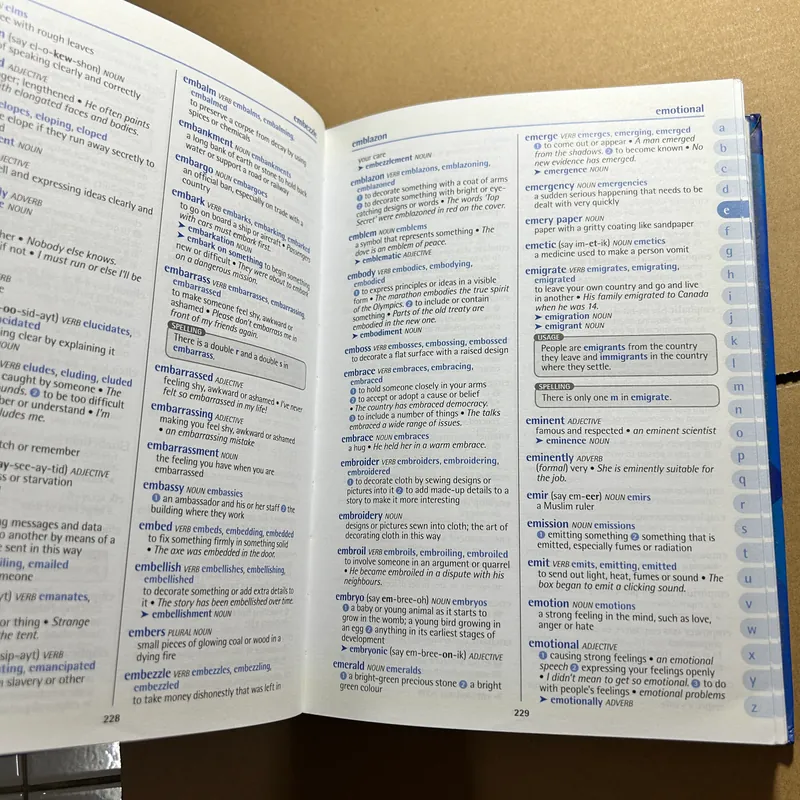 elms
ee with rough leaves
(say el-o-kew-shon) NOUN
of speaking clearly and correctly
ADJECTIVE
ger; lengthened • He often paints
th elongated faces and bodies.
elopes, eloping, eloped
e elope if they run away secretly to
NOUN
ell and expressing ideas clearly and
ADVERB
NOUN
• Nobody else knows.
if not • I must run or else I'll be
-oo-sid-ayt) VERB elucidates,
cidated
ing clear by explaining it
NOUN
VERB eludes, eluding, eluded
caught by someone • The
❷ to be too difficult
ber or understand • I'm
ludes me.
tch or remember
ay-see-ay-tid) ADJECTIVE
ss or starvation
ng messages and data
o another by means of a
e sent in this way
iling, emailed
meone
ayt) VERB emanates,
or thing • Strange
the tent.
sip-ayt) VERB
ating, emancipated
n slavery or other
embezzle
embalm VERB embalms, embalming,
embalmed
to preserve a corpse from decay by using
spices or chemicals
embankment NOUN embankments
a long bank of earth or stone to hold back
water or support a road or railway
embargo NOUN embargoes
an official ban, especially on trade with a
country
embark VERB embarks, embarking, embarked
to go on board a ship or aircraft • Passengers
with cars must embark first.
➤ embarkation NOUN
➤ embark on something to begin something
new or difficult • They were about to embark
on a dangerous mission.
embarrass VERB embarrasses, embarrassing,
embarrassed
to make someone feel shy, awkward or
ashamed • Please don't embarrass me in
front of my friends again.
SPELLING
There is a double r and a double s in
embarrass.
embarrassed ADJECTIVE
feeling shy, awkward or ashamed • I've never
felt so embarrassed in my life!
embarrassing ADJECTIVE
making you feel shy, awkward or ashamed
• an embarrassing mistake
embarrassment NOUN
the feeling you have when you are
embarrassed
embassy NOUN embassies
❶ an ambassador and his or her staff ❷ the
building where they work
embed VERB embeds, embedding, embedded
to fix something firmly in something solid
• The axe was embedded in the door.
embellish VERB embellishes, embellishing,
embellished
to decorate something or add extra details to
it • The story has been embellished over time.
➤ embellishment NOUN
embers PLURAL NOUN
small pieces of glowing coal or wood in a
dying fire
embezzle VERB embezzles, embezzling,
embezzled
to take money dishonestly that was left in
228
emblazon
your care
➤ embezzlement NOUN
emblazon VERB emblazons, emblazoning,
emblazoned
❶ to decorate something with a coat of arms
❷ to decorate something with bright or eye-
catching designs or words • The words 'Top
Secret' were emblazoned in red on the cover.
emblem NOUN emblems
a symbol that represents something • The
dove is an emblem of peace.
➤ emblematic ADJECTIVE
embody VERB embodies, embodying,
embodied
❶ to express principles or ideas in a visible
form • The marathon embodies the true spirit
of the Olympics. ❷ to include or contain
something • Parts of the old treaty are
embodied in the new one.
➤ embodiment NOUN
emboss VERB embosses, embossing, embossed
to decorate a flat surface with a raised design
embrace VERB embraces, embracing,
embraced
❶ to hold someone closely in your arms
❷ to accept or adopt a cause or belief
• The country has embraced democracy.
❸ to include a number of things • The talks
embraced a wide range of issues.
embrace NOUN embraces
a hug • He held her in a warm embrace.
embroider VERB embroiders, embroidering,
embroidered
❶ to decorate cloth by sewing designs or
pictures into it ❷ to add made-up details to a
story to make it more interesting
embroidery NOUN
designs or pictures sewn into cloth; the art of
decorating cloth in this way
embroil VERB embroils, embroiling, embroiled
to involve someone in an argument or quarrel
• He became embroiled in a dispute with his
neighbours.
embryo (say em-bree-oh) NOUN embryos
❶ a baby or young animal as it starts to
grow in the womb; a young bird growing in
an egg ❷ anything in its earliest stages of
development
➤ embryonic (say em-bree-on-ik) ADJECTIVE
emerald NOUN emeralds
❶ a bright-green precious stone ❷ a bright
green colour
229
emotional
emerge VERB emerges, emerging, emerged
❶ to come out or appear • A man emerged
from the shadows. ❷ to become known • No
new evidence has emerged.
➤ emergence NOUN
emergency NOUN emergencies
a sudden serious happening that needs to be
dealt with very quickly
emery paper NOUN
paper with a gritty coating like sandpaper
emetic (say im-et-ik) NOUN emetics
a medicine used to make a person vomit
emigrate VERB emigrates, emigrating,
emigrated
to leave your own country and go and live
in another • His family emigrated to Canada
when he was 14.
➤ emigration NOUN
➤ emigrant NOUN
USAGE
People are emigrants from the country
they leave and immigrants in the country
where they settle.
SPELLING
There is only one m in emigrate.
eminent ADJECTIVE
famous and respected • an eminent scientist
➤ eminence NOUN
eminently ADVERB
(formal) very • She is eminently suitable for
the job.
emir (say em-eer) NOUN emirs
a Muslim ruler
emission NOUN emissions
❶ emitting something ❷ something that is
emitted, especially fumes or radiation
emit VERB emits, emitting, emitted
to send out light, heat, fumes or sound • The
box began to emit a clicking sound.
emotion NOUN emotions
a strong feeling in the mind, such as love,
anger or hate
emotional ADJECTIVE
❶ causing strong feelings • an emotional
speech ❷ expressing your feelings openly
• I didn't mean to get so emotional. ❸ to do
with people's feelings • emotional problems
➤ emotionally ADVERB
a
b
c
d
e
f
g
h
i
j
k
l
m
n
o
p
q
r
s
t
u
v
w
x
y
z